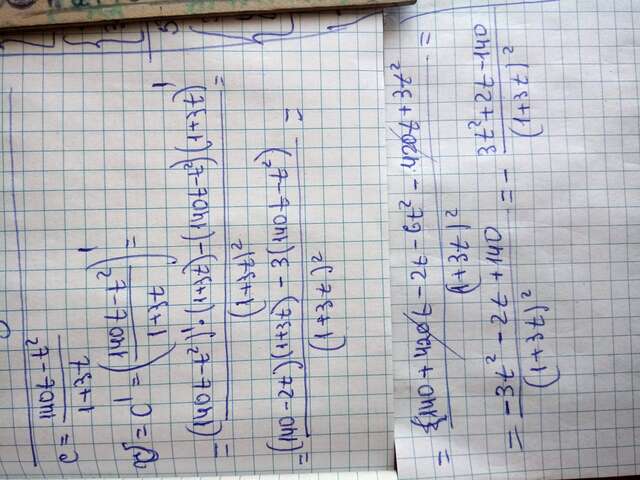 c = (140t-t²)/(1+3t)
v = c' = ((140t-t²)/(1+3t))' =
= ((140t-t²)'·(1+3t)-(140t-t²)(1+3t)')/(1+3t)² =
= ((140-2t)(1+3t)-3(140t-t²))/(1+3t)² =
= (140+420t-2t-6t²-420t+3t²)/(1+3t)² =
= (-3t²-2t+140)/(1+3t)² = -(3t²+2t-140)/(1+3t)²